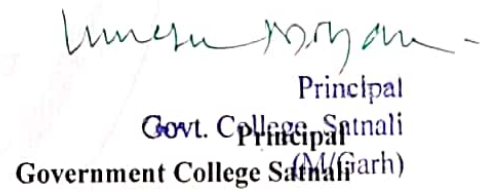 Principal
Govt. College Satnali
(M/Garh)
Principal
Government College Satnali